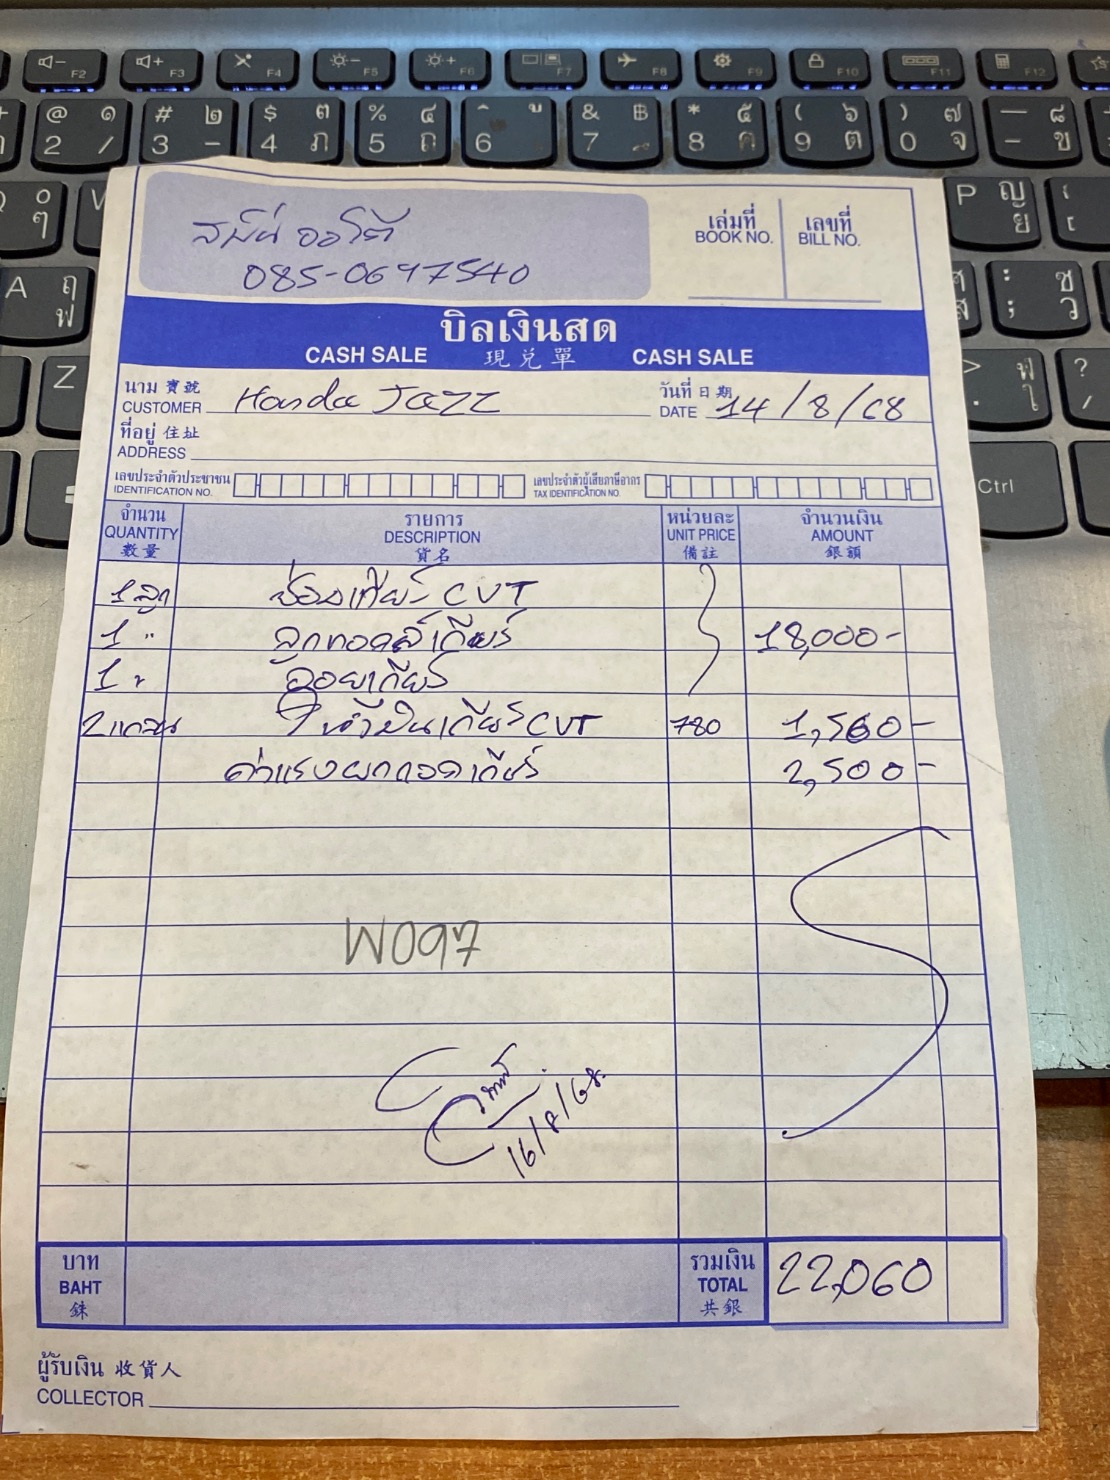 085-0697540
เล่มที่ เลขที่
BOOK NO. BILL NO.
บิลเงินสด
CASH SALE 現兌單 CASH SALE
นาม 寶號 วันที่ 日期
CUSTOMER Honda Jazz DATE 14/8/68
ที่อยู่ 住址
ADDRESS
เลขประจำตัวประชาชน เลขประจำตัวผู้เสียภาษีอากร
IDENTIFICATION NO. TAX IDENTIFICATION NO.
จำนวน รายการ หน่วยละ จำนวนเงิน
QUANTITY DESCRIPTION UNIT PRICE AMOUNT
數量 貨名 備註 銀額
1 ลูก เกียร์ CVT
1 " เกียร์ 18,000-
1 " เกียร์
2 น้ำมันเกียร์ CVT 780 1,560-
ค่าแรงยกถอดเกียร์ 2,500-
W097
16/8/68.
บาท รวมเงิน
BAHT TOTAL 22,060
銖 共銀
ผู้รับเงิน 收貨人
COLLECTOR